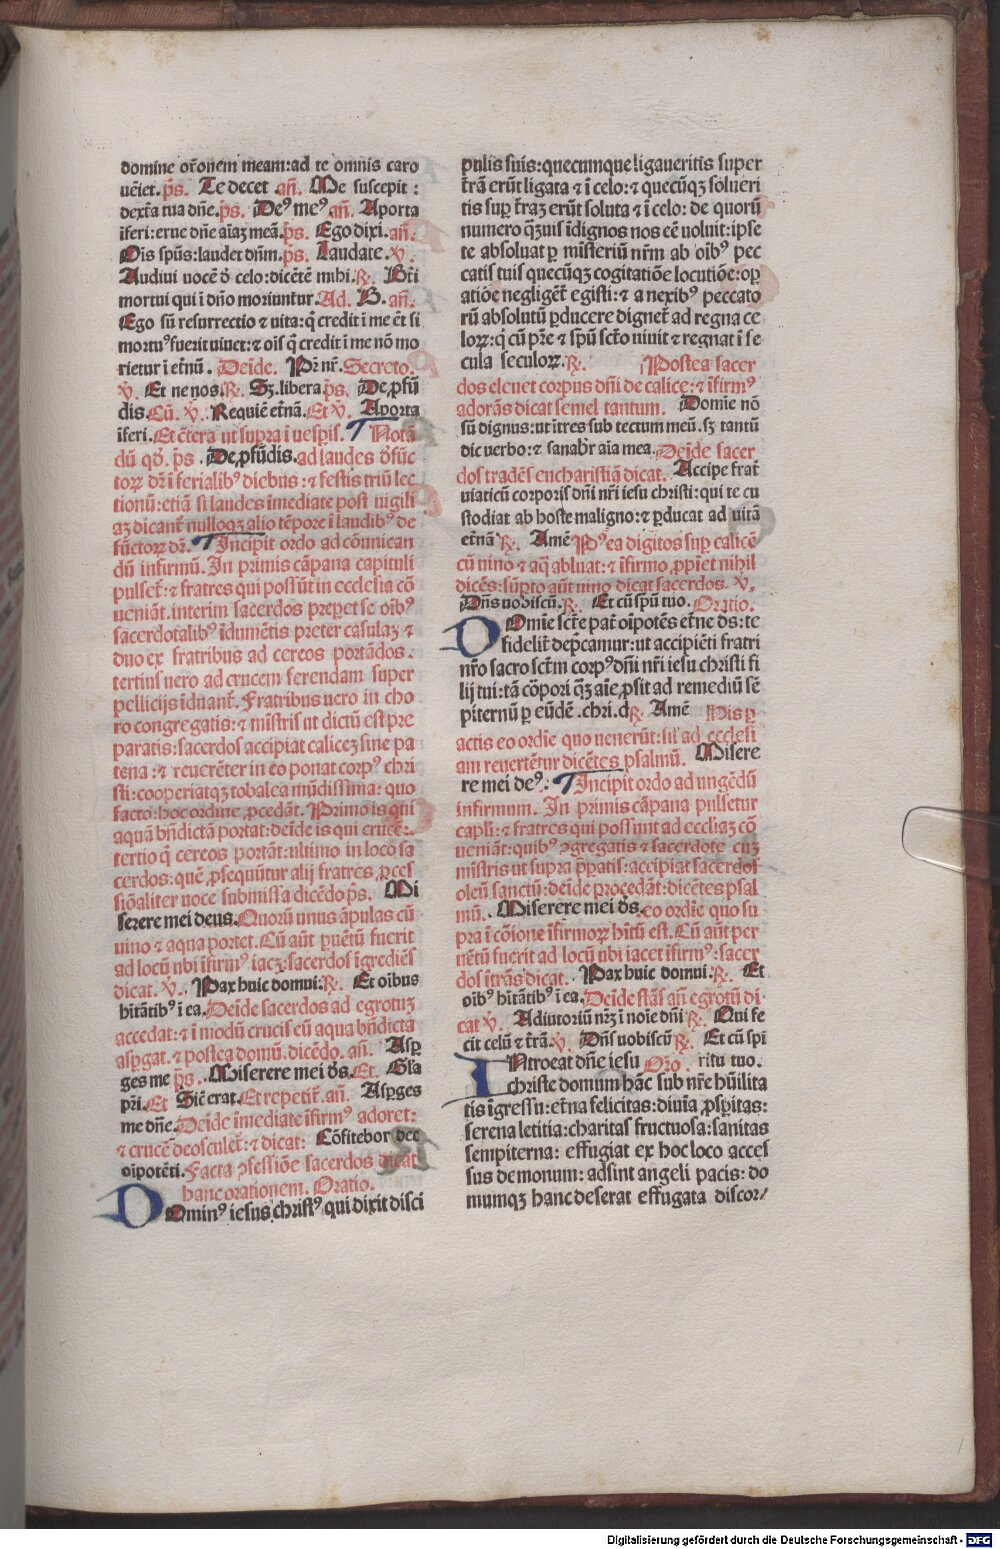 domine or̃onem meam:ad te omnis caro
uēiet.p̄s. Te decet añ. Me suscepit:
dext̃a tua dñe.p̄s. Deꝰ meꝰ añ. Aporta
ĩferi:erue dñe aīaꝫ meā.p̄s. Ego dixi.añ.
Oĩs spũs:laudet dñm.p̄s. Laudate.v̄.
Audiui uocẽ ð celo:dicẽtẽ mihi.℟. Bt̃i
mortui qui ĩ dño moriuntur.Ad. B. añ.
Ego sũ resurrectio ⁊ uita:q̃ credit ĩ me ẽt si
mortuꝰ fuerit uiuet:⁊ oĩs q̃ credit ĩ me nõ mo
rietur ĩ et̃nũ. Deĩde. Pr̃ nr̃. Secreto.
v̄. Et ne nos.℟. Sꝫ.libera p̄s. De ꝓfũ
dis.Cũ. v̄. Requiẽ et̃nã.Et v̄. Aporta
ĩferi.Et cẽtera ut supra ĩ uesꝑis. Nota
dũ qð. p̄s. De ꝓfũdis.ad laudes ðfũc
toꝝ dr̃ ĩ ferialibꝰ diebus:⁊ festis triũ lec
tionũ:etiã si laudes ĩmediate post uigili
aꝫ dicant̃ nulloqꝫ alio tẽpore ĩ laudibꝰ de
fũctoꝝ dr̃. Incipit ordo ad cõunican
dũ infirmũ. In primis cãpana capituli
pulset̃:⁊ fratres qui possũt in ecclesia cõ
ueniãt.interim sacerdos preꝑet se oĩbꝰ
sacerdotalibꝰ ĩdumẽtis preter casulaꝫ ⁊
duo ex fratribus ad cereos portãdos.
tertius uero ad crucem ferendam super
pellicijs ĩduant̃. Fratribus uero in cho
ro congregatis:⁊ mĩstris ut dictũ est pre
paratis:sacerdos accipiat caliceꝫ sine pa
tena:⁊ reuerẽter in eo ponat corpꝰ chri
sti:cooperiatqꝫ tobalea mũdissima:quo
facto:hoc ordine ꝓcedãt.Primo is qui
aquã bñdictã portat:deĩde is qui crucẽ:
tertio q̃ cereos portãt:ultimo in loco sa
cerdos:quẽ ꝓsequũtur alij fratres ꝓces
siõaliter uoce submissa dicẽdo p̄s. Mi
serere mei deus.Quorũ unus ãpulas cũ
uino ⁊ aqua portet.Cũ aũt ꝑuẽtũ fuerit
ad locũ ubi ĩfirmꝰ iacꝫ:sacerdos ĩgrediẽs
dicat. v̄. Pax huic domui:℟. Et oĩbus
hĩtãtibꝰ ĩ ea.Deĩde sacerdos ad egrotuꝫ
accedat:⁊ ĩ modũ crucis eũ aqua bñdicta
asꝑgat.⁊ postea domũ.dicẽdo. añ. Asꝑ
ges me p̄s. Miserere mei ðs.Et. Gl̃a
pr̃i.Et Sic̃ erat.Et repetit̃.añ. Asꝑges
me dñe.Deĩde ĩmediate ĩfirmꝰ adoret:
⁊ crucẽ deosculet̃:⁊ dicat: Cõfitebor deo
oĩpotẽti.Facta ꝯfessiõe sacerdos dicat
hanc orationem. Oratio.
DOminꝰ iesus christꝰ qui dixit disci
pulis suis:quecumque ligaueritis super
t̃rã erũt ligata ⁊ ĩ celo:⁊ quecũqꝫ solueri
tis suꝑ t̃raꝫ erũt soluta ⁊ ĩ celo: de quorũ
numero q̃ꝫuis ĩdignos nos eẽ uoluit:ipse
te absoluat ꝑ mĩsteriũ nr̃m ab oĩbꝰ pec
catis tuis quecũqꝫ cogitatiõe locutiõe:oꝑ
atiõe negligẽt̃ egisti:⁊ a nexibꝰ peccato
rũ absolutũ ꝑducere dignet̃ ad regna ce
loꝝ:q̃ cũ pr̃e ⁊ spũ scõ uiuit ⁊ regnat ĩ se
cula seculoꝝ.℟. Postea sacer
dos eleuet corpus dñi de calice:⁊ ĩfirmꝰ
adorãs dicat semel tantum. Domĩe nõ
sũ dignus:ut ĩtres sub tectum meũ.sꝫ tantũ
dic uerbo:⁊ sanabr̃ aĩa mea.Deĩde sacer
dos tradẽs eucharistiã dicat. Accipe frat̃
uiaticũ corporis dñi nr̃i iesu christi:qui te cu
stodiat ab hoste maligno:⁊ ꝑducat ad uitã
et̃nã ℟. Amẽ Pꝰea digitos suꝑ calicẽ
cũ uino ⁊ aq̃ abluat:⁊ ĩfirmo ꝓpiet nihil
dicẽs:sũpto aũt uino dicat sacerdos. v̄.
Dñs uobiscũ.℟. Et cũ spũ tuo. Oratio.
DOmĩe sct̃e pat̃ oĩpotẽs et̃ne ðs:te
fidelit̃ deꝑcamur:ut accipiẽti fratri
nr̃o sacro sct̃m corpꝰ dñi nr̃i iesu christi fi
lij tui:tã cõpori q̃ꝫ aĩe ꝓsit ad remediũ sẽ
piternũ ꝑ eũdẽ.chri.d℟. Amẽ His ꝑ
actis eo ordĩe quo uenerũt:sil̃ ad ecclesi
am reuertẽtur dicẽtes psalmũ. Misere
re mei deꝰ: Incipit ordo ad ungẽdũ
infirmum. In primis cãpana pulsetur
capl̃i:⁊ fratres qui possunt ad eccl̃iaꝫ cõ
ueniãt:quibꝰ ꝯgregatis ⁊ sacerdote cuꝫ
mĩstris ut supra p̃patis:accipiat sacerdos
oleũ sanctũ:deĩde procedãt:dicẽtes psal
mũ. Miserere mei ðs.eo ordĩe quo su
pra ĩ cõione ĩfirmoꝝ hĩtũ est.Cũ aũt per
uẽtũ fuerit ad locũ ubi iacet ĩfirmꝰ:sacer
dos ĩtrãs dicat. Pax huic domui.℟. Et
oĩbꝰ hĩtãtibꝰ ĩ ea.Deĩde stãs añ egrotũ di
cat v̄. Adiutoriũ nr̃ꝫ ĩ noĩe dñi ℟. Qui fe
cit celũ ⁊ t̃rã.v̄. Dñs uobiscũ ℟. Et cũ spi
INtroeat dñe iesu Or̃o. ritu tuo.
christe domum hãc sub nr̃e hũilita
tis ĩgressu:et̃na felicitas:diuĩa ꝓsꝑitas:
serena letitia:charitas fructuosa:sanitas
sempiterna: effugiat ex hoc loco acces
sus demonum:adsint angeli pacis:do
mumqꝫ hanc deserat effugata discor/
Digitalisierung gefördert durch die Deutsche Forschungsgemeinschaft - DFG